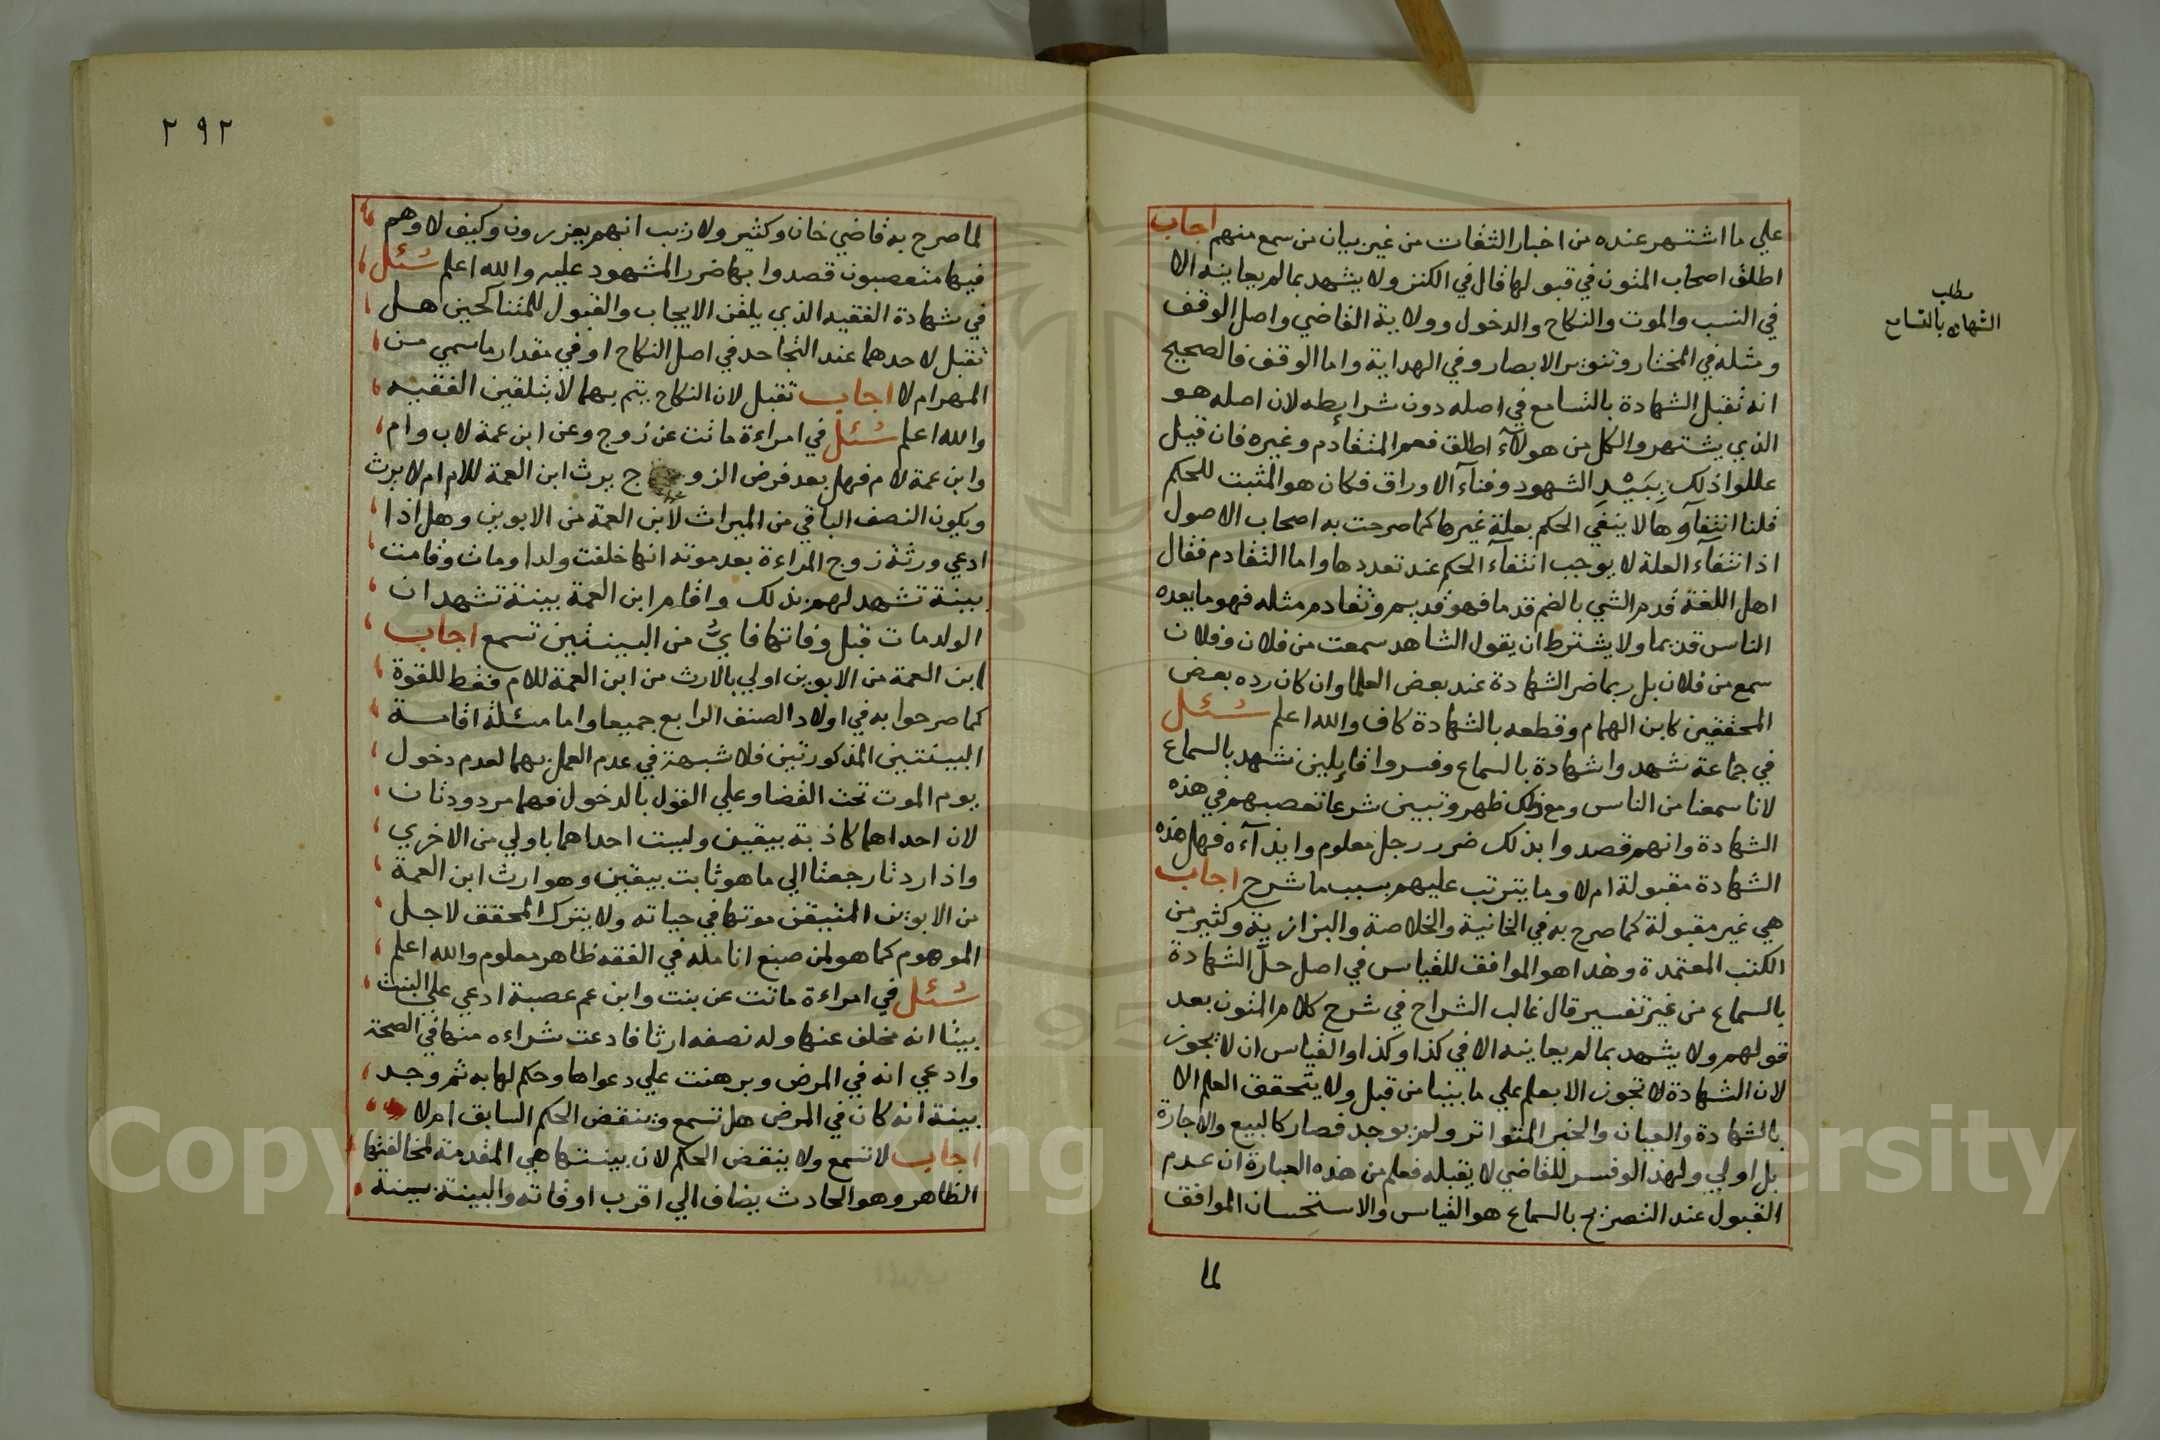 علي ما اشتهر عنده من اخبار الثقات من غير بيان من سمع منهم اجاب
اطلق اصحاب المتون في قبولها قال في الكنز ولا يشهد بما لم يعاينه الا
في النسب والموت والنكاح والدخول وولاية القاضي واصل الوقف
ومثله في المختار وتنوير الابصار وفي الهداية واما الوقف فالصحيح
انه تقبل الشهادة بالتسامع في اصله دون شرايطه لان اصله هو
الذي يشتهر والكل من هولآء اطلق فعم المتقادم وغيره فان قيل
عللوا ذلك ببَيْدِ الشهود وفنآء الاوراق فكان هو المثبت للحكم
قلنا انتفآوها لا ينفي الحكم بعلة غيرها كما صرحت به اصحاب الاصول
اذ انتفآء العلة لا يوجب انتفآء الحكم عند تعددها واما التقادم فقال
اهل اللغة قدم الشي بالضم قدما فهو قديم وتقادم مثله فهو ما يعده
الناس قديما ولا يشترط ان يقول الشاهد سمعت من فلان وفلان
سمع من فلان بل ربما ضر الشهادة عند بعض العلما وان كان رده بعض
المحققين كابن الهمام وقطعه بالشهادة كاف والله اعلم سُئل
في جماعة شهدوا شهادة بالسماع وفسروا قايلين نشهد بالسماع
لانا سمعنا من الناس ومع ذلك ظهر وتبين شرعا تعصبهم في هذه
الشهادة وانهم قصدوا بذلك ضرر رجل معلوم وايذآءه فهل هذه
الشهادة مقبولة ام لا وما يترتب عليهم بسبب ما شرح اجاب
هي غير مقبولة كما صرح به في الخانية والخلاصة والبزازية وكثير من
الكتب المعتمدة وهذا هو الموافق للقياس في اصل حلّ الشهادة
بالسماع من غير تفسير قال غالب الشراح في شرح كلام المتون بعد
قولهم ولا يشهد بما لم يعاينه الا في كذا وكذا والقياس ان لا تجوز
لان الشهادة لا تجوز الا بعلم علي ما بينا من قبل ولا يتحقق العلم الا
بالشهادة والعيان والخبر المتواتر ولم يوجد فصار كالبيع والاجارة
بل اولي ولهذا لو فسر للقاضي لا يقبله فعلم من هذه العبارة ان عدم
القبول عند التصريح بالسماع هو القياس والاستحسان الموافق
لما
مطلب
الشهادة بالتسامع
٢٩٢
لما صرح به قاضي خان وكثير ولا ريب انهم يعزرون وكيف لا وهم
فيها متعصبون قصدوا بها ضرر المشهود عليه والله اعلم سُئل
في شهادة الفقيه الذي يلقن الايجاب والقبول للمتناكحين هل
تقبل لاحدهما عند التجاحد في اصل النكاح او في مقدار ما سمي من
المهر ام لا اجاب تقبل لان النكاح يتم بهما لا بتلقين الفقيه
والله اعلم سُئل في امراءة ماتت عن زوج وعن ابن عمة لاب وام
وابن عمة لام فهل بعد فرض الزوج يرث ابن العمة للام ام لا يرث
ويكون النصف الباقي من الميراث لابن العمة من الابوين وهل اذا
ادعي ورثة زوج المراءة بعد موته انها خلفت ولدا ومات وقامت
بينة تشهد لهم بذلك واقام ابن العمة بينة تشهد ان
الولد مات قبل وفاتها فايُّ من البينتين تسمع اجاب
ابن العمة من الابوين اولي بالارث من ابن العمة للام فقط للقوة
كما صرحوا به في اولاد الصنف الرابع جميعا واما مسئلة اقامة
البينتين المذكورتين فلا شبهة في عدم العمل بهما لعدم دخول
يوم الموت تحت القضا وعلي القول بالدخول فهما مردودتان
لان احداهما كاذبة بيقين وليست احداهما باولي من الاخري
واذا ردتا رجعنا الي ما هو ثابت بيقين وهو ارث ابن العمة
من الابوين المتيقن موتها في حياته ولا يترك المحقق لاجل
الموهوم كما هو لمن صبغ انامله في الفقه ظاهر معلوم والله اعلم
سُئل في امراءة ماتت عن بنت وابن عم عصبة ادعي علي البنت
بيتا انه مخلف عنها وله نصفه ارثا فادعت شراءه منها في الصحة
وادعي انه في المرض وبرهنت علي دعواها وحكم لها به ثم وجد
بينة انه كان في المرض هل تسمع وينقض الحكم السابق ام لا
اجاب لا تسمع ولا ينقض الحكم لان بينتها هي المقدمة لمخالفتها
الظاهر وهو الحادث يضاف الي اقرب اوقاته والبينة بينة
Copyright © King Saud University